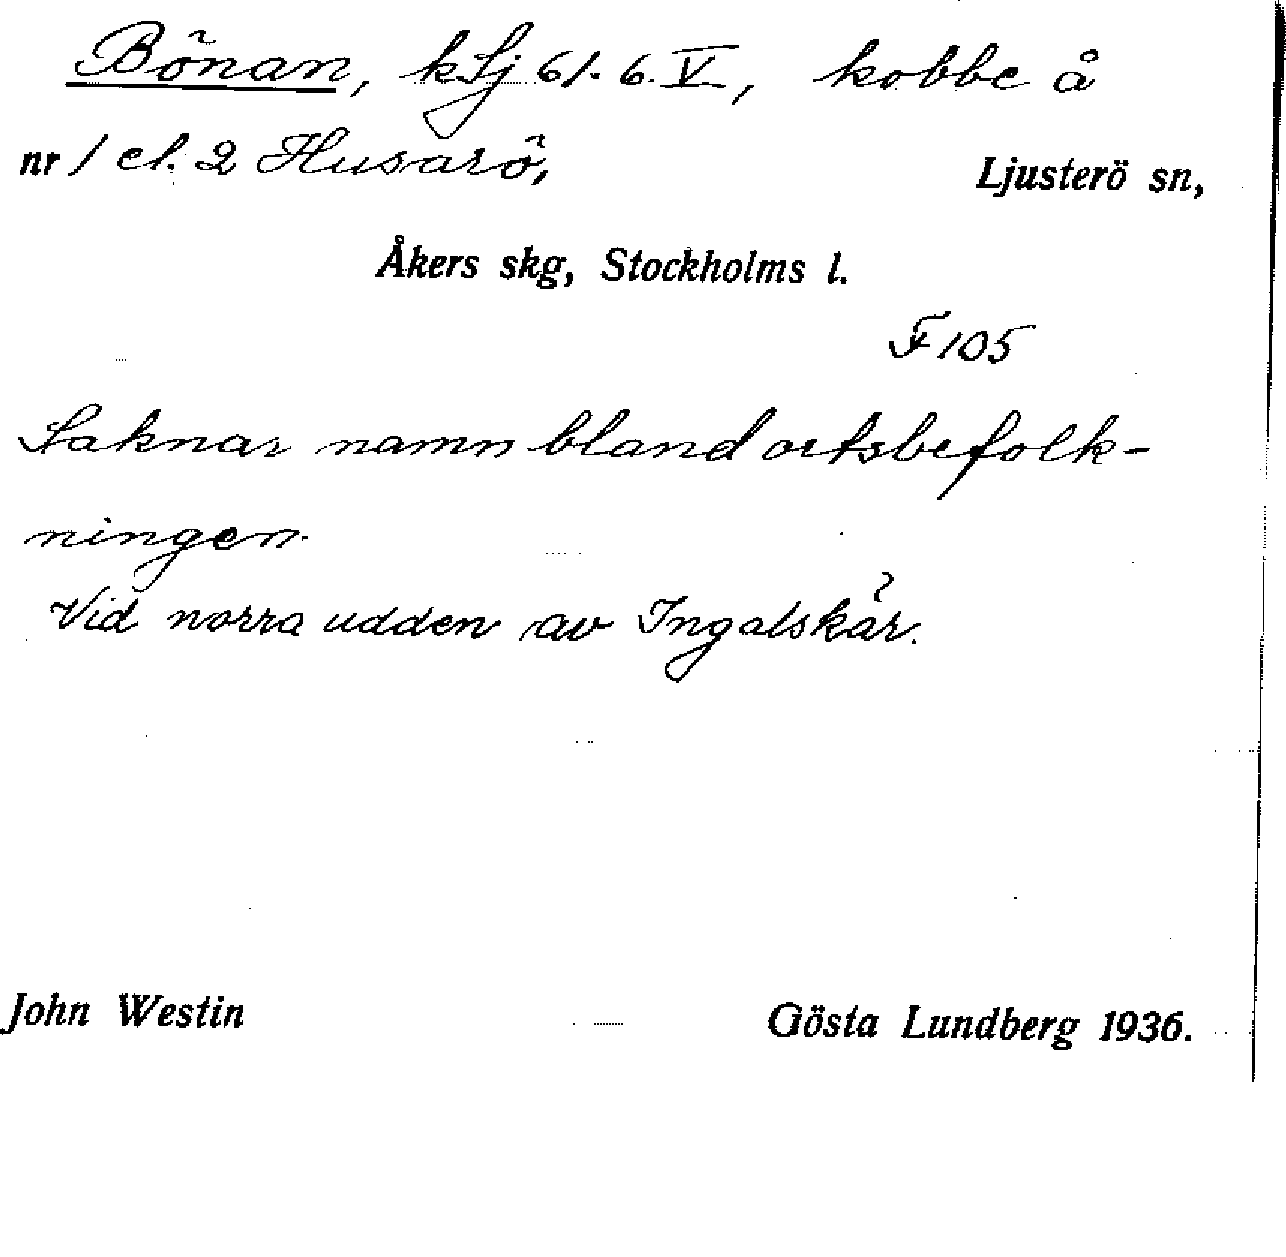 Bönan, kSj 61. 6. V, kobbe å
nr 1 el. 2 Husarö, Ljusterö sn,
Åkers skg, Stockholms l.
F 105
Saknar namn bland ortsbefolk-
ningen.
Vid norra udden av Ingalskär.
John Westin Gösta Lundberg 1936.